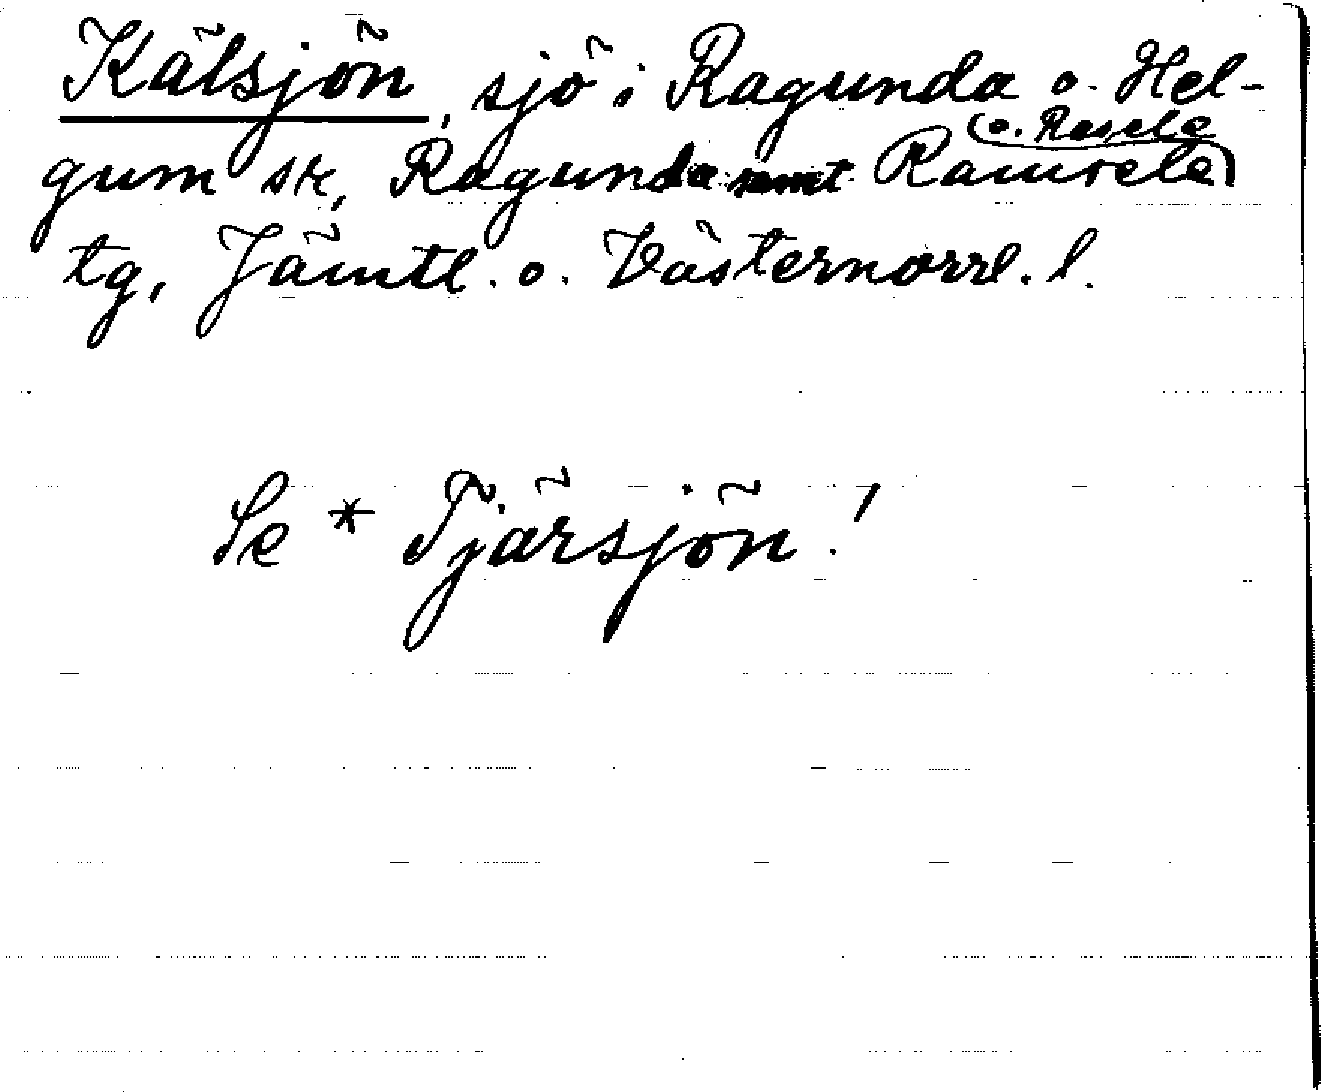 Kälsjön, sjö i Ragunda o. Hel-
(o. Resele
gum sk, Ragunda samt Ramsele)
tg, Jämtl. o. Västernorrl. l.
Se * Tjärsjön!